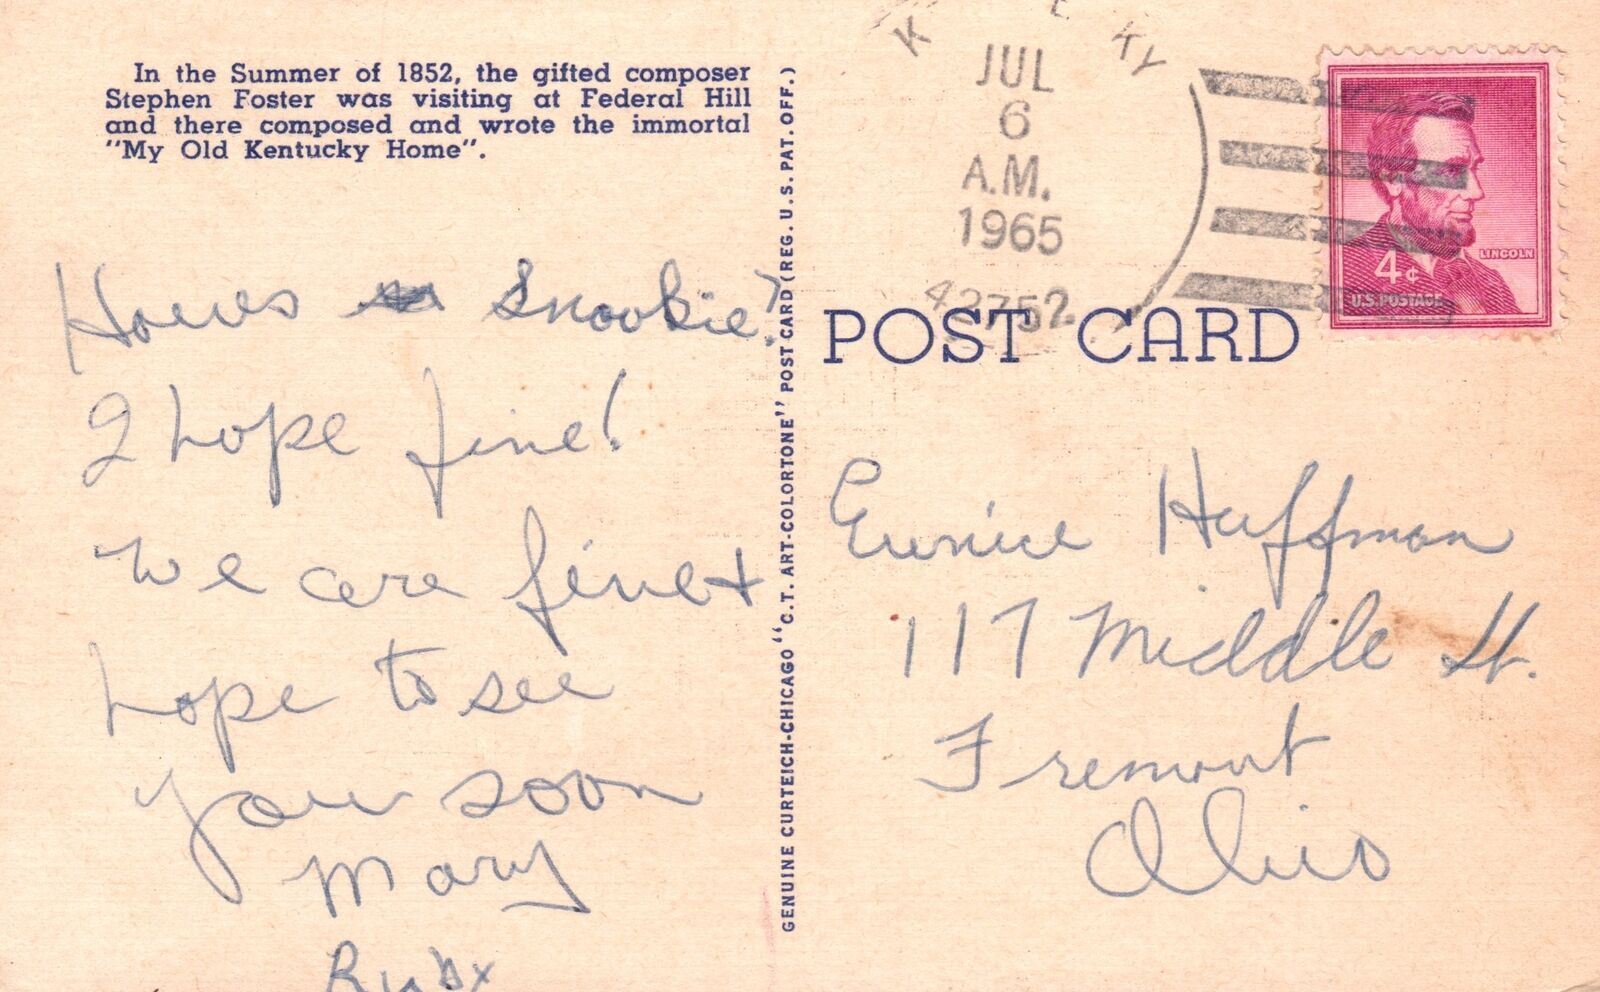 In the Summer of 1852, the gifted composer
Stephen Foster was visiting at Federal Hill
and there composed and wrote the immortal
"My Old Kentucky Home".
Howes Snookie?
I hope fine!
We are fine +
hope to see
you soon
Mary
Ruby
GENUINE CURTEICH-CHICAGO "C.T. ART-COLORTONE" POST CARD (REG. U.S. PAT. OFF.)
KY
JUL
6
A.M.
1965
42752
LINCOLN
4¢
U.S. POSTAGE
POST CARD
Eunice Huffman
117 Middle St.
Fremont
Ohio